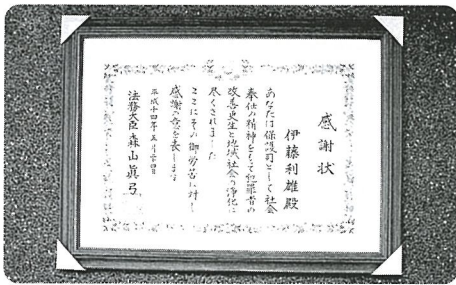 感謝状
伊藤利雄殿
あなたは保護司として社会
奉仕の精神をもって犯罪者の
改善更生と地域社会の浄化に
尽くされました
ここにその御労苦に対し
感謝の意を表します
平成十四年五月二十四日
法務大臣森山眞弓